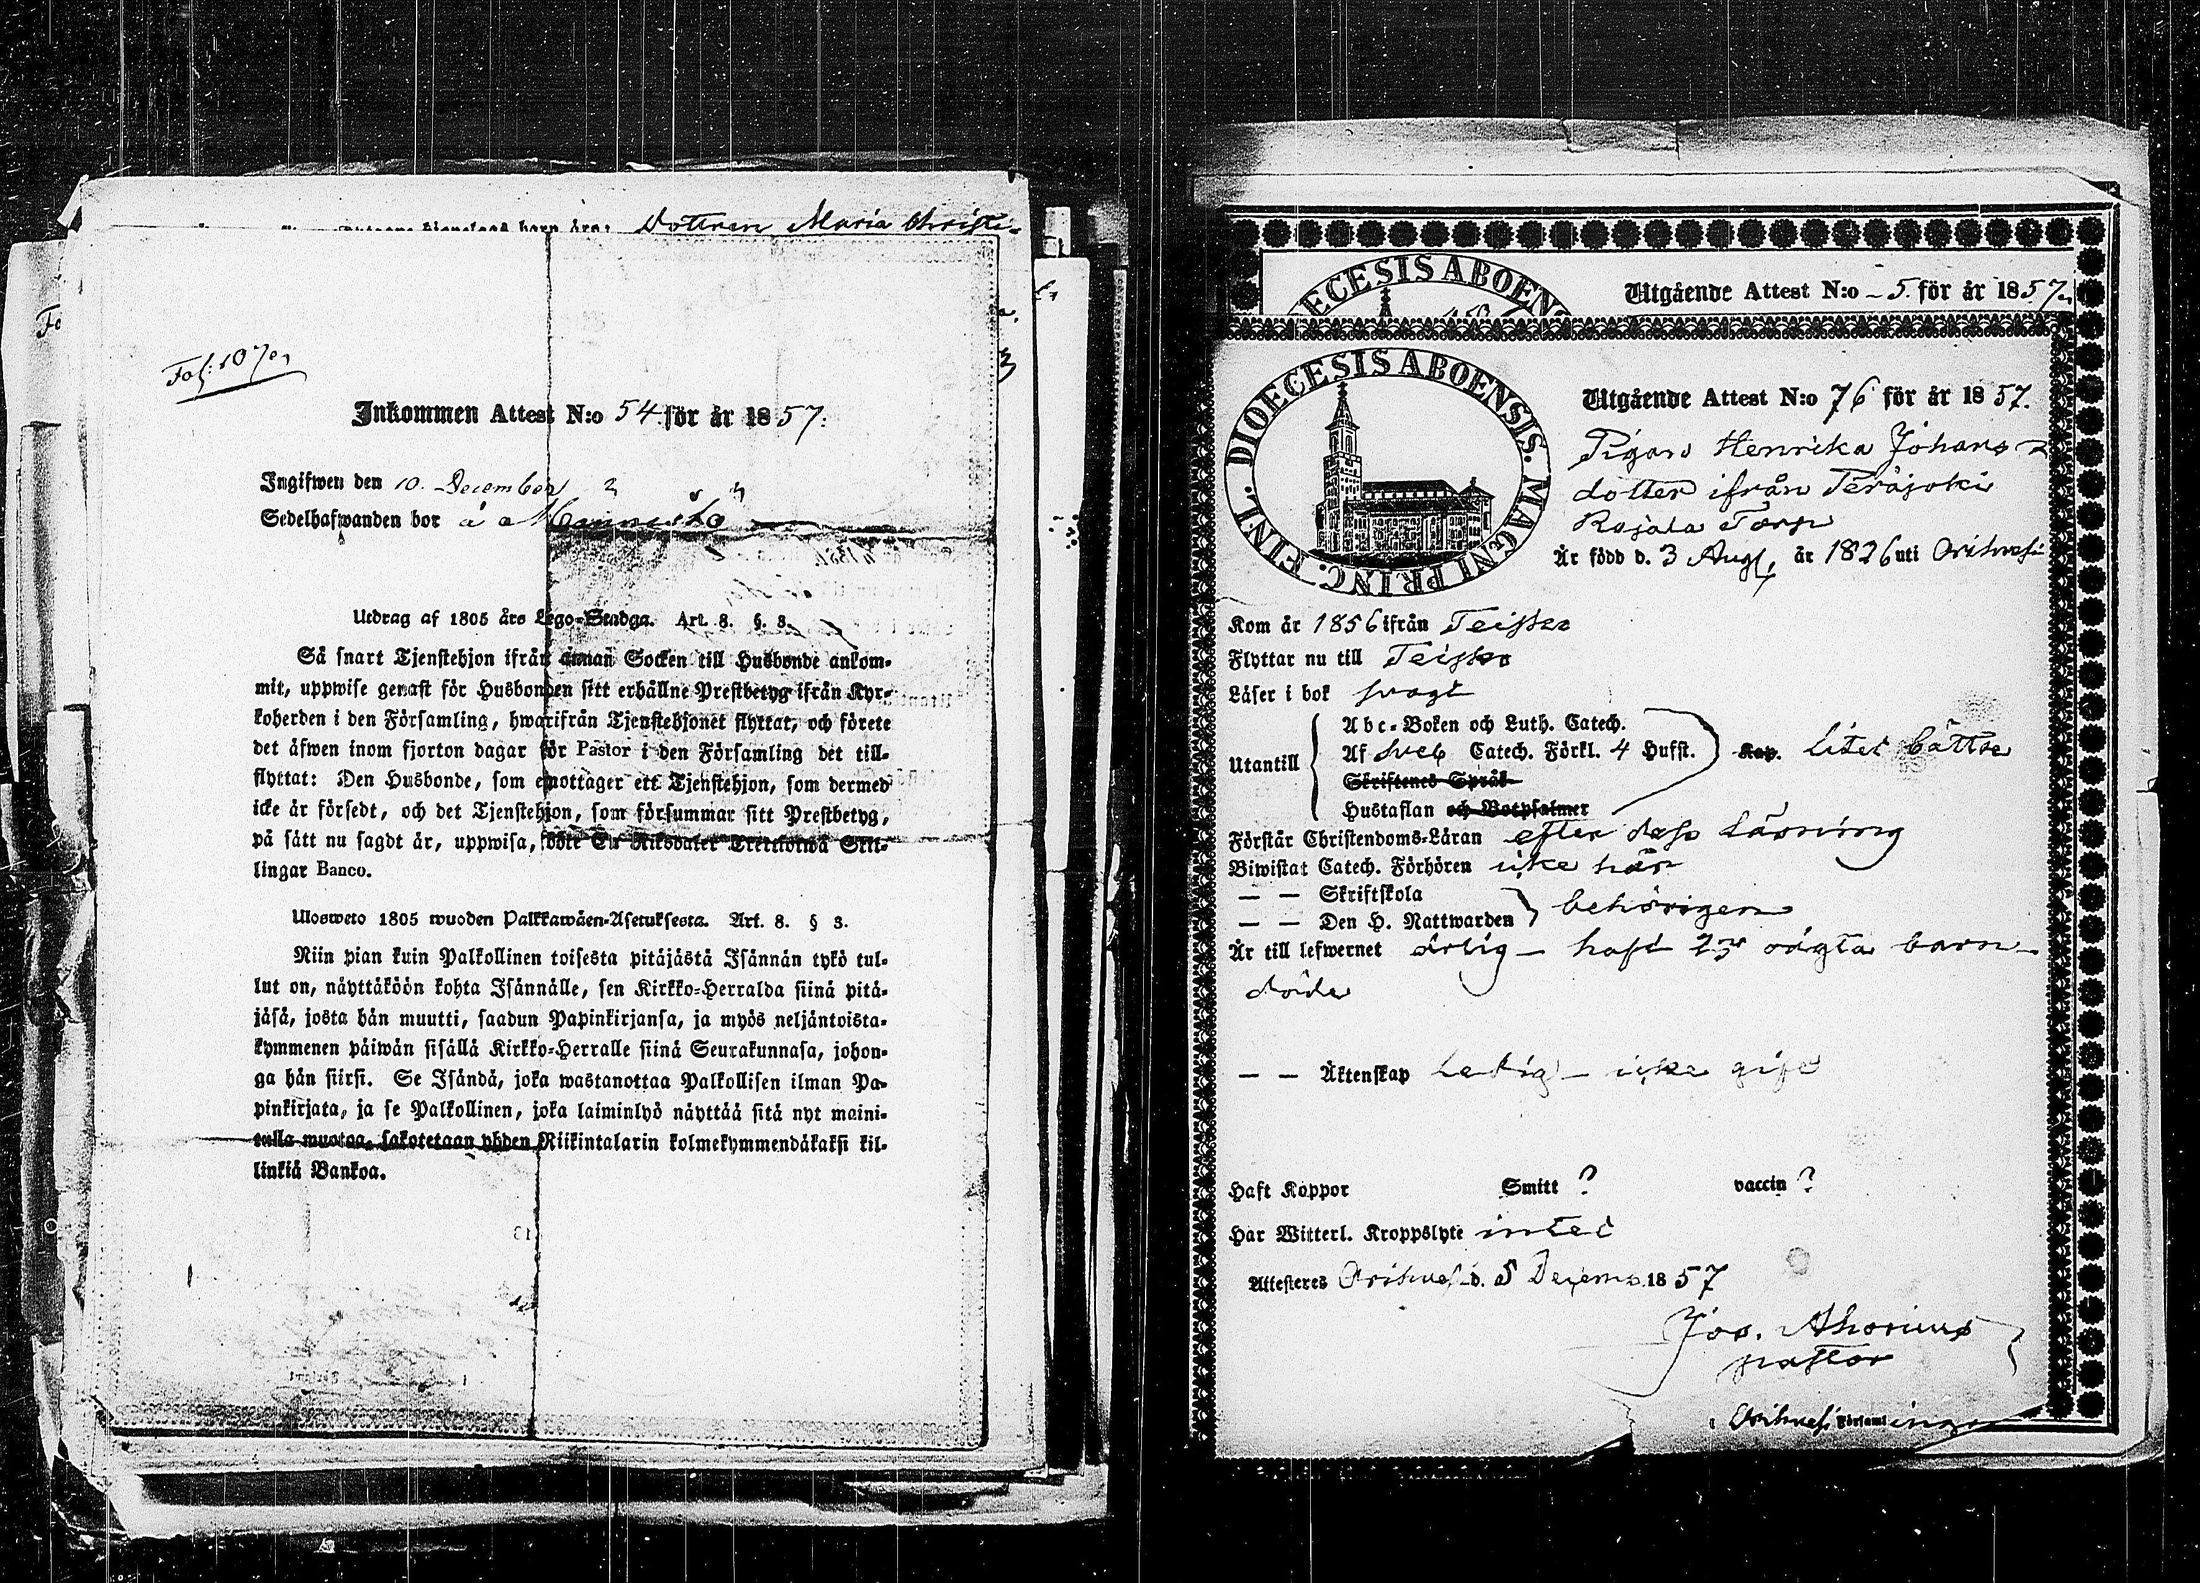 Dottren Maria Christi-
Fol: 1070,
Inkommen Attest N:o 54 för år 1857.
Ingifwen den 10. December
Sedelhafwanden bor å Mannisto
Utdrag af 1805 års Lego-Stadga. Art. 8. §. 3.
Så snart Tjenstehjon ifrån annan Socken till Husbonde ankom-
mit, uppwise genast för Husbonden sitt erhållne Prestbetyg ifrån Kyr-
koherden i den Församling, hwarifrån Tjenstehjonet flyttat, och förete
det äfwen inom fjorton dagar för Pastor i den Församling det till-
flyttat: Den Husbonde, som emottager ett Tjenstehjon, som dermed
icke är försedt, och det Tjenstehjon, som försummar sitt Prestbetyg,
på sätt nu sagdt är, uppwisa, böte En Riksdaler Trettiotwå Skil-
lingar Banco.
Ulosweto 1805 wuoden Palkkawäen-Asetuksesta. Art. 8. § 3.
Niin pian kuin Palkollinen toisesta pitäjästä Isännän tykö tul-
lut on, näyttäköön kohta Isännälle, sen Kirkko-Herralda siinä pitä-
jäsä, josta hän muutti, saadun Papinkirjansa, ja myös neljäntoista-
kymmenen päiwän sisällä Kirkko-Herralle siinä Seurakunnasa, johon-
ga hän siirsi. Se Isändä, joka wastanottaa Palkollisen ilman Pa-
pinkirjata, ja se Palkollinen, joka laiminlyö näyttää sitä nyt maini-
tulla muotoa, sakotetaan yhden Riikintalarin kolmekymmendäkaksi kil-
linkiä Bankoa.
ECESIS ABOEN
Utgående Attest N:o 5. för år 1857.
DIOECESIS ABOENSIS. MAGNI PRINC. FINL.
Utgående Attest N:o 76 för år 1857.
Pigan Henrika Johans
dotter ifrån Teräjoki
Rajala Torp
Är född d. 3 Aug. år 1826 uti Orihvesi
Kom år 1856 ifrån Teisko
Flyttar nu till Teisko
Läser i bok svagt
Utantill
Abc-Boken och Luth. Catech.
Af Sveb Catech. Förkl. 4 Hufst. Kap. litet bättre
Skriftenes Språk
Hustaflan och Botpsalmer
Förstår Christendoms-Läran efter dess läsning
Biwistat Catech. Förhören icke här
— — Skriftskola
— — Den H. Nattwarden behörigen
Är till lefwernet ärlig – haft 2 oägta barn –
döde
— — Äktenskap Ledig – icke gift
Haft Koppor Smitt ? vaccin ?
Har Witterl. Kroppslyte intet
Attesteres Orihvesi d. 5 Decemb. 1857
Jos. Ahonius
pastor
i Orihvesi Församlingar